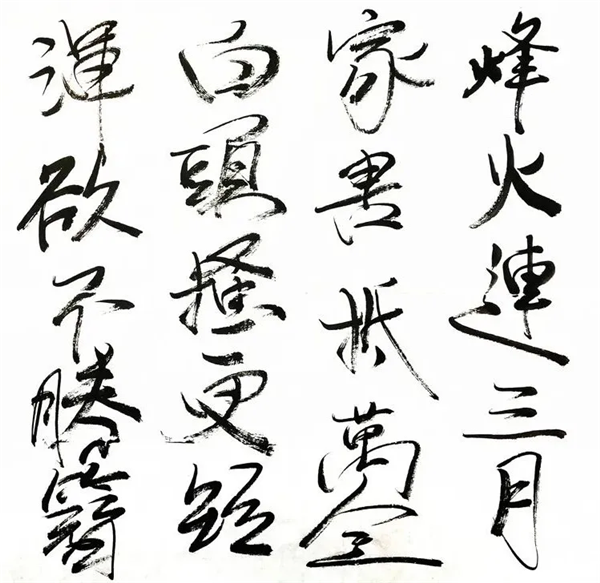 烽火連三月
家書抵萬金
白頭搔更短
渾欲不勝簪